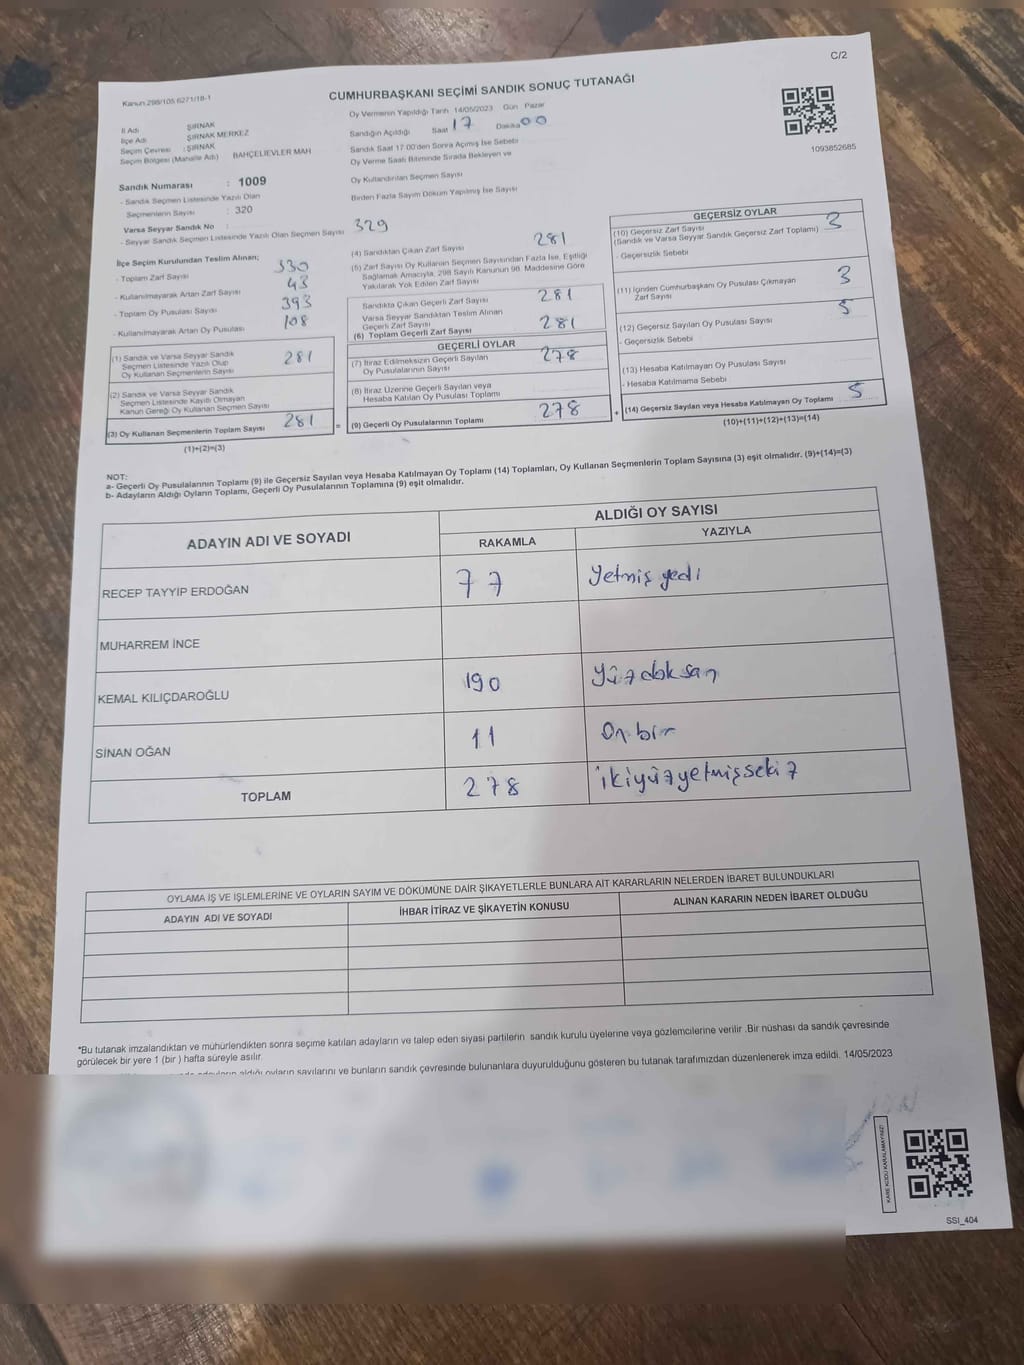 C/2
Kanun 298/105 6271/18-1
CUMHURBAŞKANI SEÇİMİ SANDIK SONUÇ TUTANAĞI
İl Adı ŞIRNAK
İlçe Adı ŞIRNAK MERKEZ
Seçim Çevresi : ŞIRNAK
Seçim Bölgesi (Mahalle Adı) BAHÇELİEVLER MAH
Sandık Numarası : 1009
- Sandık Seçmen Listesinde Yazılı Olan
Seçmenlerin Sayısı : 320
Varsa Seyyar Sandık No :
- Seyyar Sandık Seçmen Listesinde Yazılı Olan Seçmen Sayısı
Oy Vermenin Yapıldığı Tarih 14/05/2023 Gün Pazar
Sandığın Açıldığı Saat 17 Dakika 00
Sandık Saat 17:00'den Sonra Açılmış İse Sebebi
Oy Verme Saati Bitiminde Sırada Bekleyen ve
Oy Kullandırılan Seçmen Sayısı
Birden Fazla Sayım Döküm Yapılmış İse Sayısı
329
1093852685
İlçe Seçim Kurulundan Teslim Alınan;
- Toplam Zarf Sayısı 330
- Kullanılmayarak Artan Zarf Sayısı 43
- Toplam Oy Pusulası Sayısı 393
- Kullanılmayarak Artan Oy Pusulası 108
(1) Sandık ve Varsa Seyyar Sandık
Seçmen Listesinde Yazılı Olup
Oy Kullanan Seçmenlerin Sayısı 281
(2) Sandık ve Varsa Seyyar Sandık
Seçmen Listesinde Kayıtlı Olmayan
Kanun Gereği Oy Kullanan Seçmen Sayısı
(3) Oy Kullanan Seçmenlerin Toplam Sayısı 281
(1)+(2)=(3)
(4) Sandıktan Çıkan Zarf Sayısı 281
(5) Zarf Sayısı Oy Kullanan Seçmen Sayısından Fazla İse, Eşitliği
Sağlamak Amacıyla, 298 Sayılı Kanunun 98. Maddesine Göre
Yakılarak Yok Edilen Zarf Sayısı
Sandıkta Çıkan Geçerli Zarf Sayısı 281
Varsa Seyyar Sandıktan Teslim Alınan
Geçerli Zarf Sayısı
(6) Toplam Geçerli Zarf Sayısı 281
GEÇERLİ OYLAR
(7) İtiraz Edilmeksizin Geçerli Sayılan
Oy Pusulalarının Sayısı 278
(8) İtiraz Üzerine Geçerli Sayılan veya
Hesaba Katılan Oy Pusulası Toplamı
= (9) Geçerli Oy Pusulalarının Toplamı 278
GEÇERSİZ OYLAR
(10) Geçersiz Zarf Sayısı
(Sandık ve Varsa Seyyar Sandık Geçersiz Zarf Toplamı) 3
- Geçersizlik Sebebi
(11) İçinden Cumhurbaşkanı Oy Pusulası Çıkmayan
Zarf Sayısı 3
(12) Geçersiz Sayılan Oy Pusulası Sayısı
- Geçersizlik Sebebi
(13) Hesaba Katılmayan Oy Pusulası Sayısı
- Hesaba Katılmama Sebebi
+ (14) Geçersiz Sayılan veya Hesaba Katılmayan Oy Toplamı
(10)+(11)+(12)+(13)=(14)
NOT:
a- Geçerli Oy Pusulalarının Toplamı (9) ile Geçersiz Sayılan veya Hesaba Katılmayan Oy Toplamı (14) Toplamları, Oy Kullanan Seçmenlerin Toplam Sayısına (3) eşit olmalıdır. (9)+(14)=(3)
b- Adayların Aldığı Oyların Toplamı, Geçerli Oy Pusulalarının Toplamına (9) eşit olmalıdır.
ADAYIN ADI VE SOYADI ALDIĞI OY SAYISI
RAKAMLA YAZIYLA
RECEP TAYYİP ERDOĞAN 77 Yetmiş yedi
MUHARREM İNCE
KEMAL KILIÇDAROĞLU 190 Yüzdoksan
SİNAN OĞAN 11 On bir
TOPLAM 278 ikiyüzyetmişsekiz
OYLAMA İŞ VE İŞLEMLERİNE VE OYLARIN SAYIM VE DÖKÜMÜNE DAİR ŞİKAYETLERLE BUNLARA AİT KARARLARIN NELERDEN İBARET BULUNDUKLARI
ADAYIN ADI VE SOYADI İHBAR İTİRAZ VE ŞİKAYETİN KONUSU ALINAN KARARIN NEDEN İBARET OLDUĞU
*Bu tutanak imzalandıktan ve mühürlendikten sonra seçime katılan adayların ve talep eden siyasi partilerin sandık kurulu üyelerine veya gözlemcilerine verilir .Bir nüshası da sandık çevresinde
görülecek bir yere 1 (bir ) hafta süreyle asılır.
aldığı oyların sayılarını ve bunların sandık çevresinde bulunanlara duyurulduğunu gösteren bu tutanak tarafımızdan düzenlenerek imza edildi. 14/05/2023
KARE KODU KARALAMAYINIZ!
SSI_404